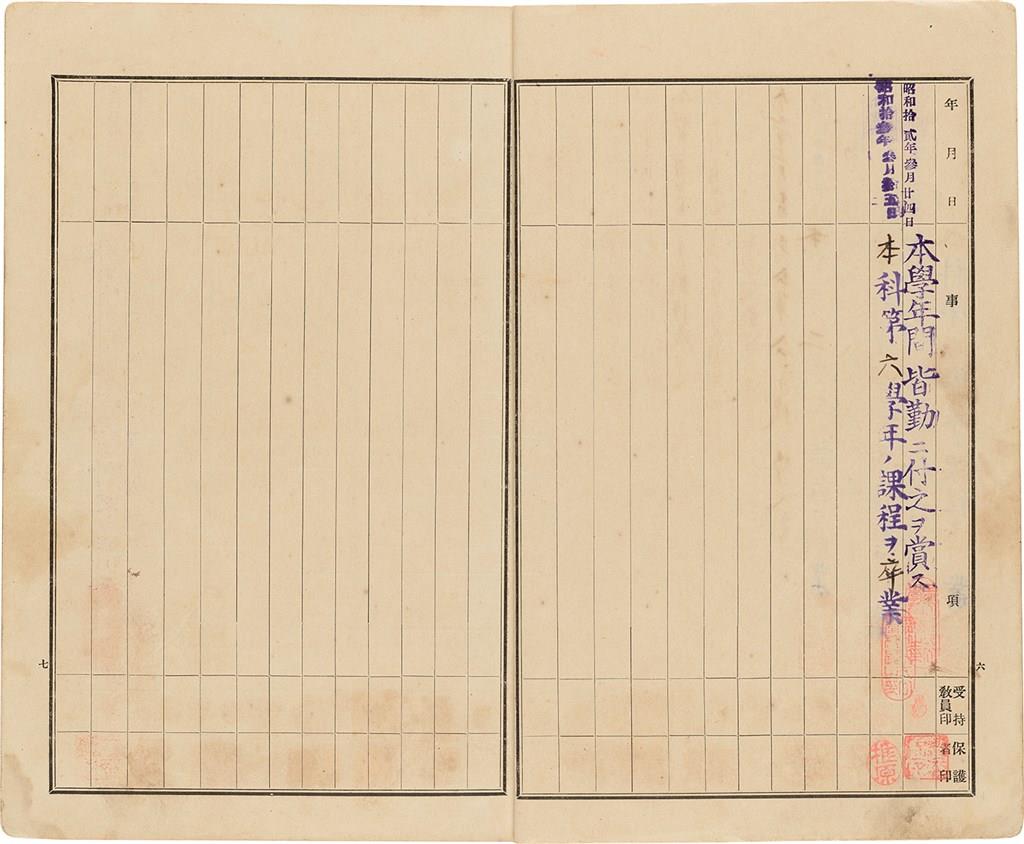 年月日
事項
受持教員印
保護者印
昭和拾貳年參月廿四日
本學年間皆勤ニ付之ヲ賞ス
昭和拾參年參月
本科第六學年ノ課程ヲ卒業
六
七